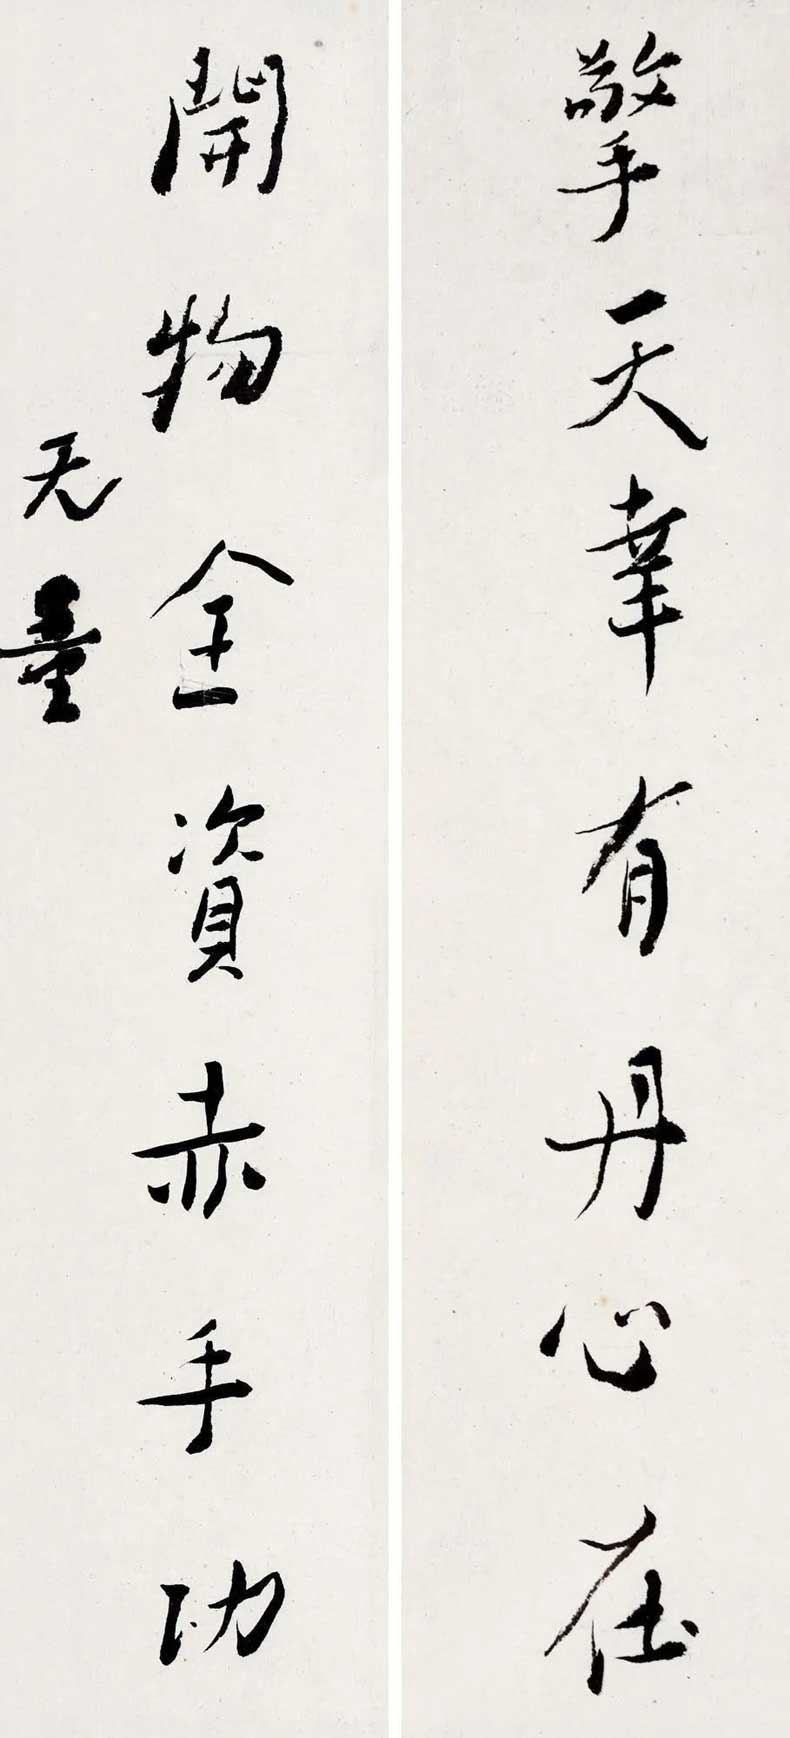 擎天幸有丹心在
開物全資赤手功
无量